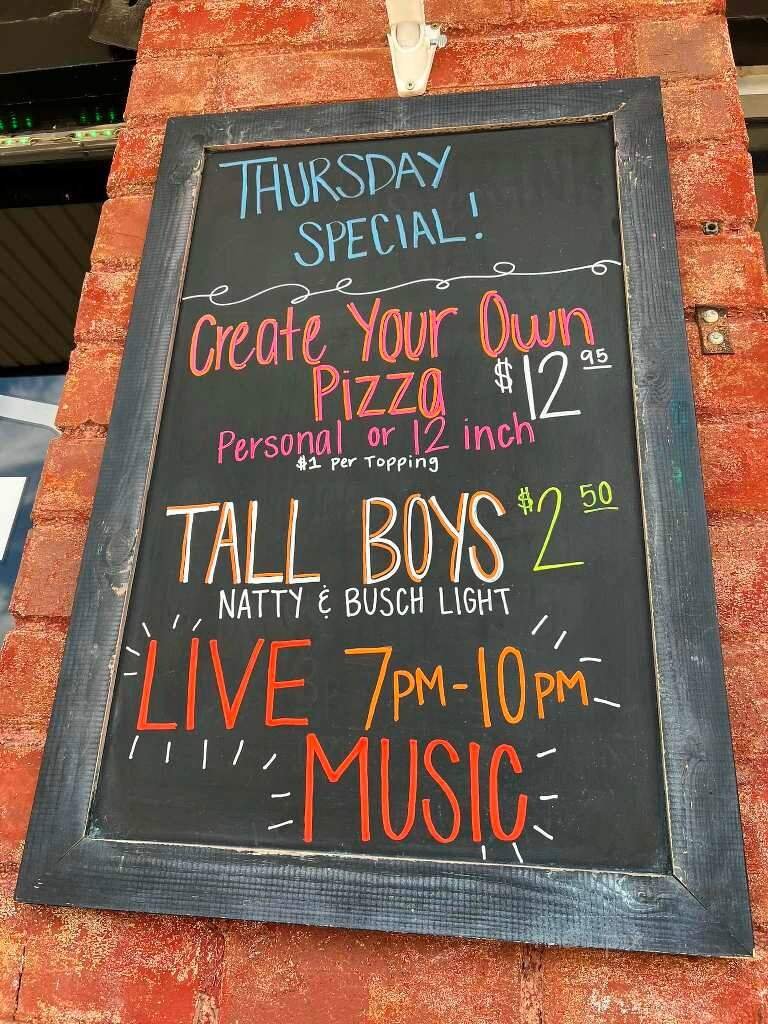 THURSDAY
SPECIAL!
Create Your Own
Pizza $12 95
Personal or 12 inch
$1 Per Topping
TALL BOYS $2 50
NATTY & BUSCH LIGHT
LIVE 7PM-10PM
MUSIC